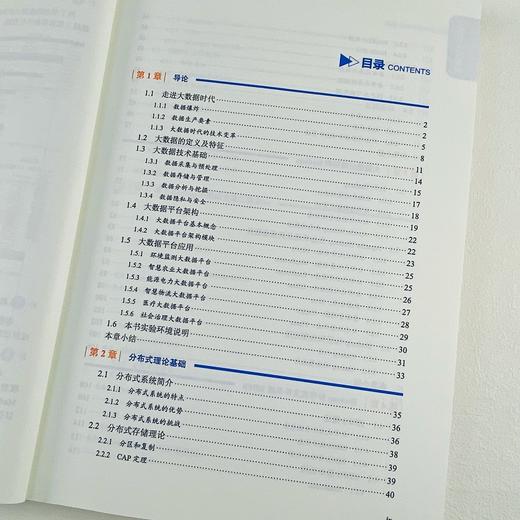 目录 CONTENTS
第1章 导论
1.1 走进大数据时代 2
1.1.1 数据爆炸 2
1.1.2 数据生产要素 5
1.1.3 大数据时代的技术变革 8
1.2 大数据的定义及特征 11
1.3 大数据技术基础 14
1.3.1 数据采集与预处理 15
1.3.2 数据存储与管理 17
1.3.3 数据分析与挖掘 18
1.3.4 数据隐私与安全 19
1.4 大数据平台架构 22
1.4.1 大数据平台基本概念 22
1.4.2 大数据平台架构模块 23
1.5 大数据平台应用 25
1.5.1 环境监测大数据平台 25
1.5.2 智慧农业大数据平台 26
1.5.3 能源电力大数据平台 27
1.5.4 智慧物流大数据平台 28
1.5.5 医疗大数据平台 29
1.5.6 社会治理大数据平台 30
1.6 本书实验环境说明 31
本章小结 33
第2章 分布式理论基础
2.1 分布式系统简介 35
2.1.1 分布式系统的特点 36
2.1.2 分布式系统的优势 36
2.1.3 分布式系统的挑战 38
2.2 分布式存储理论 39
2.2.1 分区和复制 39
2.2.2 CAP定理 40